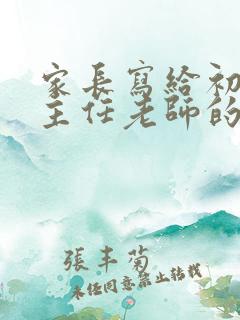 家長寫給初
主任老師的
張丰菊
未經同意禁止轉載